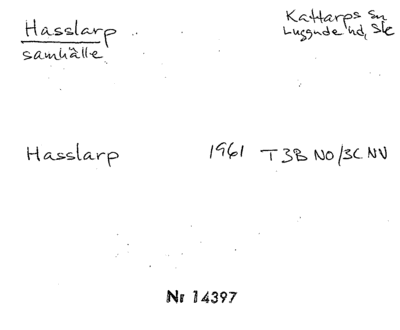 Hasslarp
samhälle
Kattarps sn
Luggude hd, Sk
Hasslarp 1961 T 3B NO/3C NV
Nr 14397